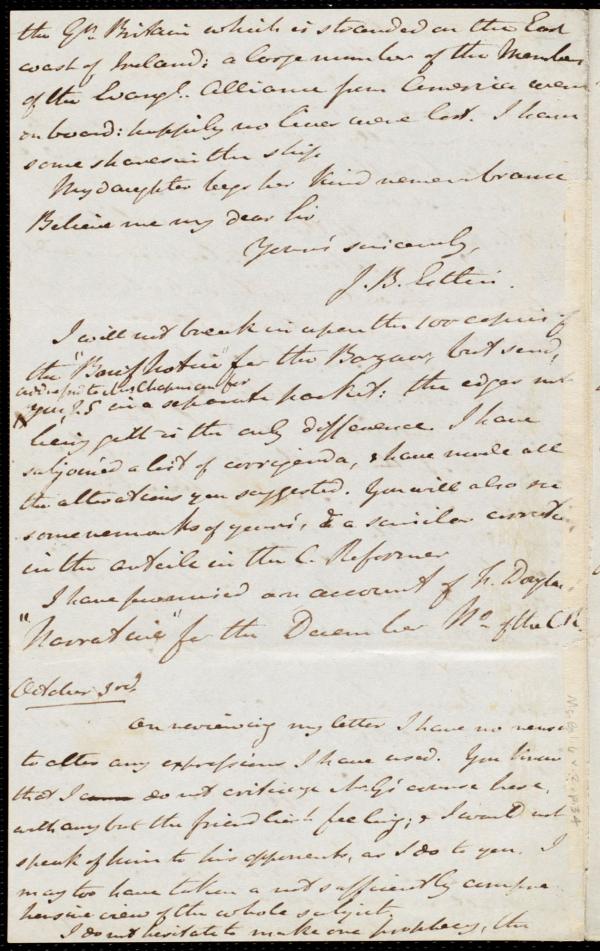 the Gt. Britain which is stranded on the East
coast of Ireland: a large number of the Members
of the Evangl. Alliance from America were
on board: happily no lives were lost. I have
some shares in the ship.
My daughter begs her kind remembrance
Believe me my dear Sir
Yours sincerely,
J. B. Estlin.
I will not break in upon the 100 copies of
the "Brief Notice" for the Bazaar, but send,
addressed to Mrs Chapman for
you, 25 in a separate packet: the edges not
being gilt is the only difference. I have
subjoined a list of corrigenda, & have made all
the alterations you suggested. You will also see
some remarks of yours, & a similar correction,
in the article in the C. Reformer
I have promised an account of F. Douglass'
"Narrative" for the December No. of the C.R.
October 3rd.
On reviewing my letter I have no reason
to alter any expressions I have used. You know
that I do not criticize Mr G's course here,
with any but the friendliest feeling; & I would not
speak of him to his opponents, as I do to you. I
may too have taken a not sufficiently compre-
hensive view of the whole subject.
I do not hesitate to make one prophecy, the